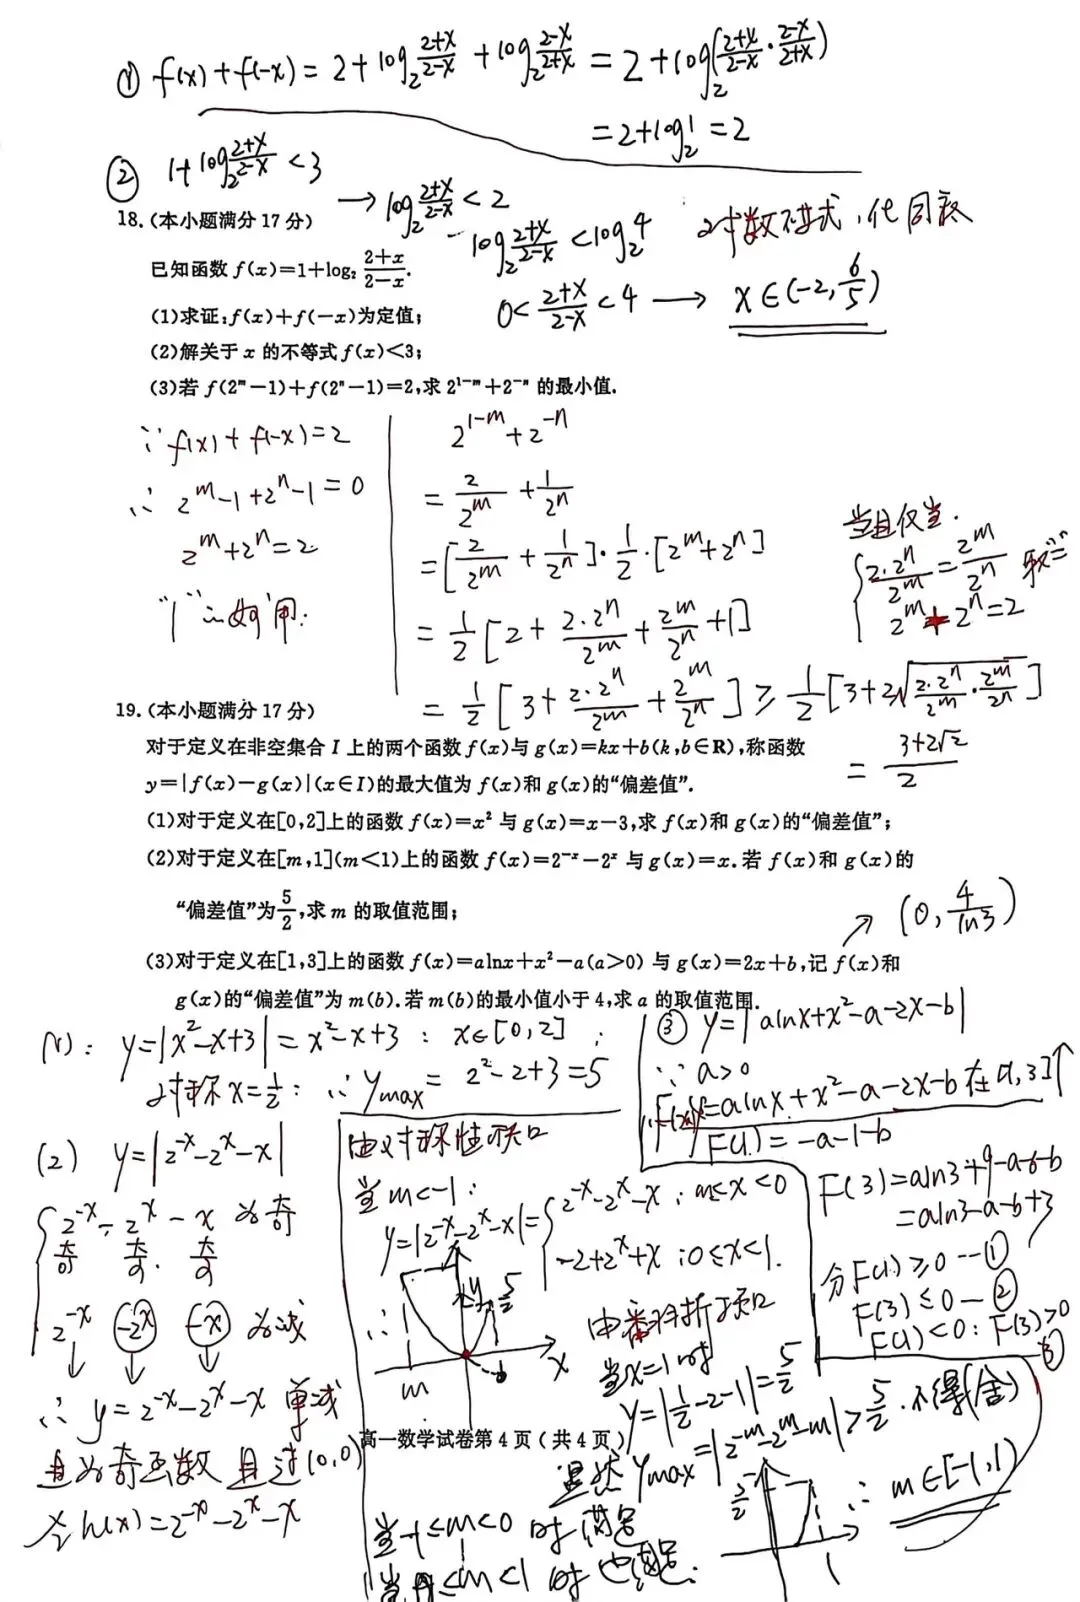 ① f(x)+f(-x)=2+log₂(2+x)/(2-x)+log₂(2-x)/(2+x)=2+log₂((2+x)/(2-x)·(2-x)/(2+x))
=2+log₂1=2
② 1+log₂(2+x)/(2-x)<3
→log₂(2+x)/(2-x)<2
log₂(2+x)/(2-x)<log₂4 对数不等式,化同底
0<(2+x)/(2-x)<4 → x∈(-2,6/5)
18.(本小题满分17分)
已知函数f(x)=1+log₂(2+x)/(2-x).
(1)求证:f(x)+f(-x)为定值;
(2)解关于x的不等式f(x)<3;
(3)若f(2^m-1)+f(2^n-1)=2,求2^(1-m)+2^(-n)的最小值.
∵f(x)+f(-x)=2
∴2^m-1+2^n-1=0
2^m+2^n=2
"1"的妙用:
2^(1-m)+2^(-n)
=2/2^m+1/2^n
=[2/2^m+1/2^n]·1/2·[2^m+2^n]
=1/2[2+2·2^n/2^m+2^m/2^n+1]
=1/2[3+2·2^n/2^m+2^m/2^n]≥1/2[3+2√(2·2^n/2^m·2^m/2^n)]
=(3+2√2)/2
当且仅当.
{2·2^n/2^m=2^m/2^n
2^m+2^n=2 取"="
19.(本小题满分17分)
对于定义在非空集合I上的两个函数f(x)与g(x)=kx+b(k,b∈R),称函数
y=|f(x)-g(x)|(x∈I)的最大值为f(x)和g(x)的“偏差值”.
(1)对于定义在[0,2]上的函数f(x)=x²与g(x)=x-3,求f(x)和g(x)的“偏差值”;
(2)对于定义在[m,1](m<1)上的函数f(x)=2^(-x)-2^x与g(x)=x.若f(x)和g(x)的
“偏差值”为5/2,求m的取值范围;
(3)对于定义在[1,3]上的函数f(x)=alnx+x²-a(a>0)与g(x)=2x+b,记f(x)和
g(x)的“偏差值”为m(b).若m(b)的最小值小于4,求a的取值范围.
↗(0,4/ln3)
(1): y=|x²-x+3|=x²-x+3: x∈[0,2];
对称x=1/2: ∴y_max=2²-2+3=5
(2) y=|2^(-x)-2^x-x|
{2^(-x)-2^x-x为奇
奇 奇. 奇
2^(-x) -2^x -x 为减
↓ ↓ ↓
∴y=2^(-x)-2^x-x单减
且为奇函数且过(0,0)
令h(x)=2^(-x)-2^x-x
由对称性可知
当m<-1:
y=|2^(-x)-2^x-x|={2^(-x)-2^x-x;m≤x<0
-2+2^x+x;0≤x<1.
∴
y 5/2
m x
由翻折可知
当x=1时
y=|1/2-2-1|=5/2
显然y_max=|2^(-m)-2^m-m|>5/2.不得(舍)
当-1≤m<0时满足
当0≤m<1时也满足.
5/2
1
∴m∈[-1,1)
③ y=|alnx+x²-a-2x-b|
∵a>0
F(x)=alnx+x²-a-2x-b在[1,3]↑
F(1)=-a-1-b
F(3)=aln3+9-a-6-b
=aln3-a-b+3
分F(1)≥0---①
F(3)≤0—②
F(1)<0:F(3)>0
③
高一数学试卷第4页(共4页)